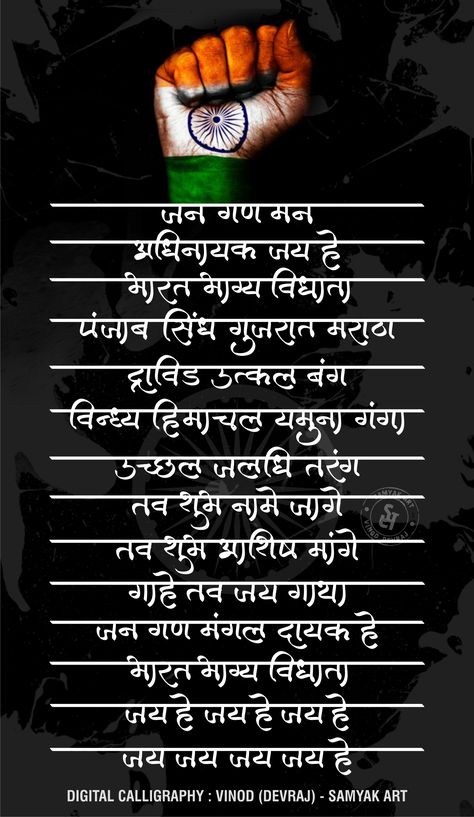 जन गण मन
अधिनायक जय हे
भारत भाग्य विधाता
पंजाब सिंध गुजरात मराठा
द्राविड उत्कल बंग
विन्ध्य हिमाचल यमुना गंगा
उच्छल जलधि तरंग
तव शुभ नामे जागे
SAMYAK ART
VINOD DEVRAJ
तव शुभ आशिष मांगे
गाहे तव जय गाथा
जन गण मंगल दायक हे
भारत भाग्य विधाता
जय हे जय हे जय हे
जय जय जय जय हे
DIGITAL CALLIGRAPHY : VINOD (DEVRAJ) - SAMYAK ART